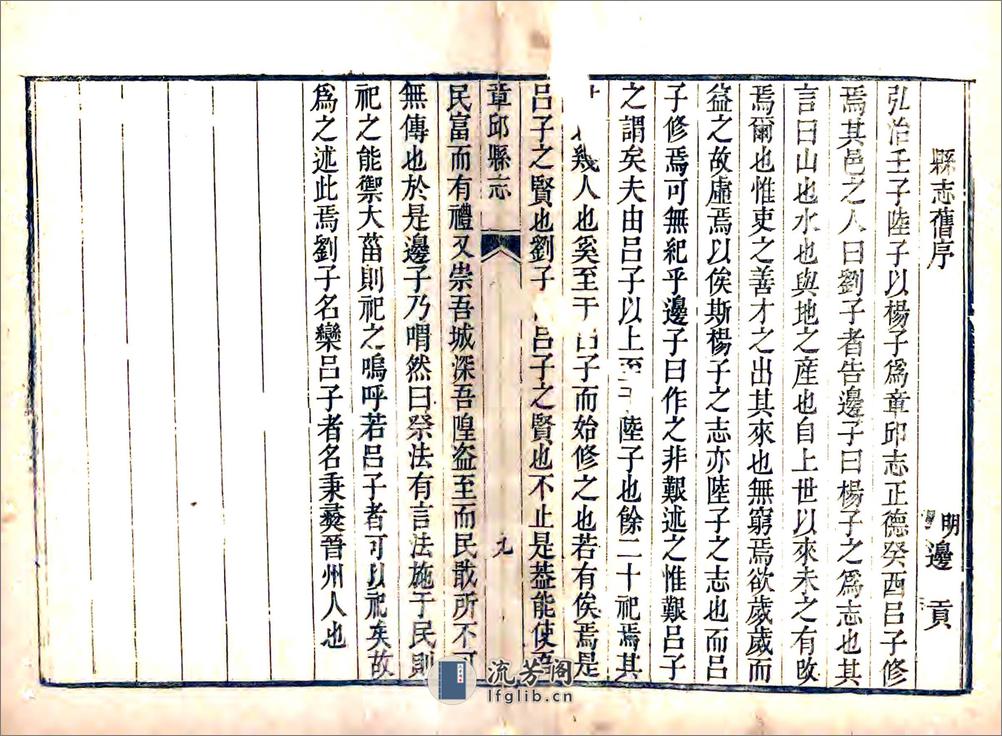 縣志舊序
明 邊貢
弘治壬子陸子以楊子爲章邱志正德癸酉呂子修
焉其邑之人曰劉子者告邊子曰楊子之爲志也其
言曰山也水也與地之産也自上世以來未之有改
焉爾也惟吏之善才之出其來也無窮焉欲歲歲而
益之故虛焉以俟斯楊子之志亦陸子之志也而呂
子修焉可無紀乎邊子曰作之非艱述之惟艱呂子
之謂矣夫由呂子以上至 陸子也餘二十祀焉其
幾人也奚至于呂子而始修之也若有俟焉是
呂子之賢也劉子 呂子之賢也不止是葢能使吾
章邱縣志
九
民富而有禮又崇吾城深吾隍盗至而民散所不可
無傳也於是邊子乃喟然曰祭法有言法施于民則
祀之能禦大菑則祀之嗚呼若呂子者可以祀矣故
爲之述此焉劉子名欒呂子者名秉彜晉州人也
流芳阁
lfglib.cn